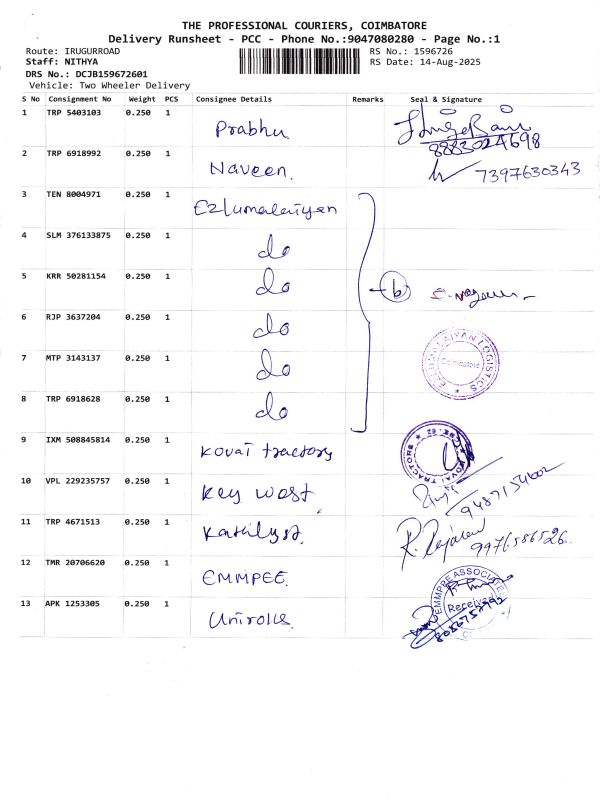 THE PROFESSIONAL COURIERS, COIMBATORE
Delivery Runsheet - PCC - Phone No.:9047080280 - Page No.:1
Route: IRUGURROAD RS No.: 1596726
Staff: NITHYA RS Date: 14-Aug-2025
DRS No.: DCJB159672601
Vehicle: Two Wheeler Delivery
S No Consignment No Weight PCS Consignee Details Remarks Seal & Signature
1 TRP 5403103 0.250 1 Prabhu.
8883024698
2 TRP 6918992 0.250 1 Naveen. 7397630343
3 TEN 8004971 0.250 1 Ezlumalaiyan
4 SLM 376133875 0.250 1 do
5 KRR 50281154 0.250 1 do 6
6 RJP 3637204 0.250 1 do
7 MTP 3143137 0.250 1 do EZLUMALAIYAN LOGISTICS Coimbatore
8 TRP 6918628 0.250 1 do
9 IXM 508845814 0.250 1 Kovai tractors KOVAI TRACTORS
10 VPL 229235757 0.250 1 Key west
11 TRP 4671513 0.250 1 Kathlyst. 9976586526.
12 TMR 20706620 0.250 1 EMMPEE. EMMPEE ASSOCIATE Received
13 APK 1253305 0.250 1 Unirolls.